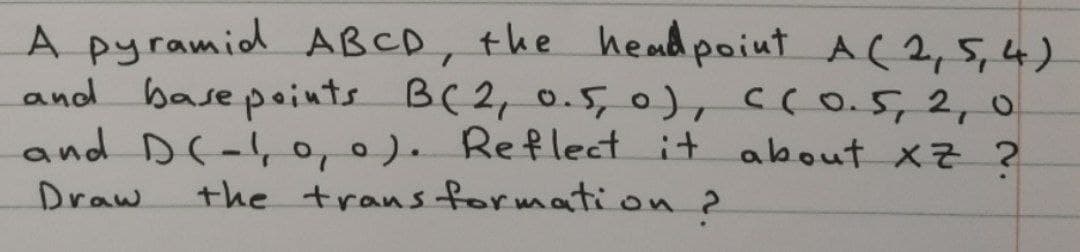 A pyramid ABCD, the headpoint A(2,5,4)
and base points B(2, 0.5, 0), C(0.5, 2, 0
and D(-1, 0, 0). Reflect it about xz ?
Draw the transformation ?